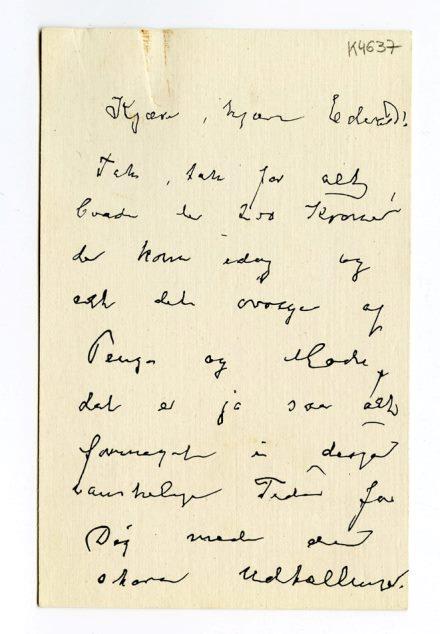 K4637
Kjære, kjære Edvard!
Tak, tak for alt
baade de 200 Kroner
der kom idag og
alt det øvrige af
Penge og Mad,
det er jo saa alt
formeget i disse
vanskelige Tider for
Dig med de
store Udtællinger.